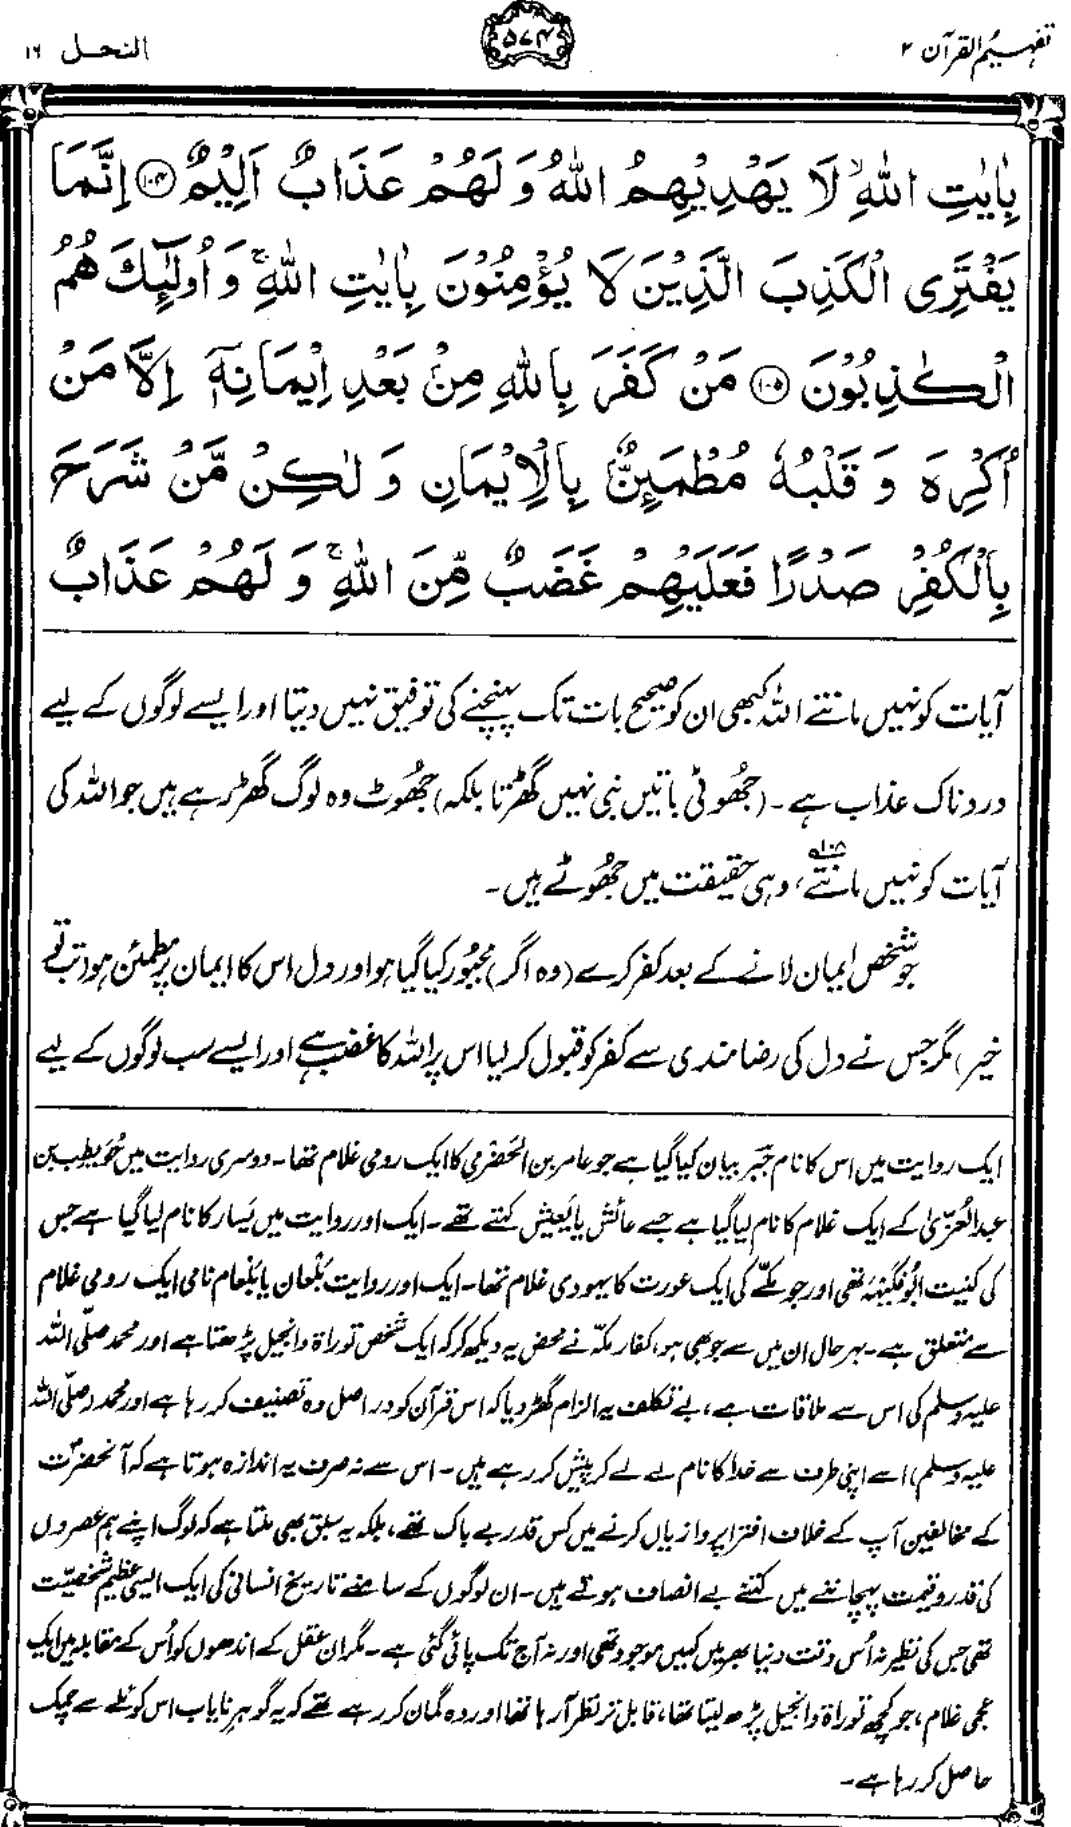 تفہیم القرآن ۲
۵۷۴
النحل ۱۶
بِاٰيٰتِ اللّٰهِ ۙ لَا يَهْدِيْهِمُ اللّٰهُ وَ لَهُمْ عَذَابٌ اَلِيْمٌ ﴿۱۰۴﴾ اِنَّمَا
يَفْتَرِى الْكَذِبَ الَّذِيْنَ لَا يُؤْمِنُوْنَ بِاٰيٰتِ اللّٰهِ ۚ وَ اُولٰٓئِكَ هُمُ
الْكٰذِبُوْنَ ﴿۱۰۵﴾ مَنْ كَفَرَ بِاللّٰهِ مِنْۢ بَعْدِ اِيْمَانِهٖۤ اِلَّا مَنْ
اُكْرِهَ وَ قَلْبُهٗ مُطْمَئِنٌّۢ بِالْاِيْمَانِ وَ لٰكِنْ مَّنْ شَرَحَ
بِالْكُفْرِ صَدْرًا فَعَلَيْهِمْ غَضَبٌ مِّنَ اللّٰهِ ۚ وَ لَهُمْ عَذَابٌ
آیات کو نہیں مانتے اللہ کبھی ان کو صحیح بات تک پہنچنے کی توفیق نہیں دیتا اور ایسے لوگوں کے لیے
دردناک عذاب ہے۔ (جھُوٹی باتیں نبی نہیں گھڑتا بلکہ) جھُوٹ وہ لوگ گھڑ رہے ہیں جو اللہ کی
آیات کو نہیں مانتے،۱۰۸ وہی حقیقت میں جھُوٹے ہیں۔
جو شخص ایمان لانے کے بعد کفر کرے (وہ اگر) مجبُور کیا گیا ہو اور دل اس کا ایمان پر مطمئن ہو (تب تو
خیر) مگر جس نے دل کی رضامندی سے کفر کو قبول کر لیا اس پر اللہ کا غضب ہے اور ایسے سب لوگوں کے لیے
ایک روایت میں اس کا نام جَبر بیان کیا گیا ہے جو عامر بن الحَضرمی کا ایک رومی غلام تھا۔ دوسری روایت میں حُوَیطِب بن
عبدالعُزّیٰ کے ایک غلام کا نام لیا گیا ہے جسے عائش یا یَعیش کہتے تھے۔ ایک اور روایت میں یَسار کا نام لیا گیا ہے جس
کی کنیت ابُو فُکَیہَہ تھی اور جو مکّے کی ایک عورت کا یہودی غلام تھا۔ ایک اور روایت بَلعان یا بَلعام نامی ایک رومی غلام
سے متعلق ہے۔ بہر حال ان میں سے جو بھی ہو، کفار مکّہ نے محض یہ دیکھ کر کہ ایک شخص توراۃ و انجیل پڑھتا ہے اور محمد صلّی اللہ
علیہ وسلم کی اس سے ملاقات ہے، بے تکلف یہ الزام گھڑ دیا کہ اس قرآن کو دراصل وہ تصنیف کر رہا ہے اور محمد (صلّی اللہ
علیہ وسلم) اسے اپنی طرف سے خدا کا نام لے لے کر پیش کر رہے ہیں۔ اس سے نہ صرف یہ اندازہ ہوتا ہے کہ آنحضرتؐ
کے مخالفین آپ کے خلاف افترا پردازیاں کرنے میں کس قدر بے باک تھے، بلکہ یہ سبق بھی ملتا ہے کہ لوگ اپنے ہم عصروں
کی قدر و قیمت پہچاننے میں کتنے بے انصاف ہوتے ہیں۔ ان لوگوں کے سامنے تاریخ انسانی کی ایک ایسی عظیم شخصیّت
تھی جس کی نظیر نہ اُس وقت دنیا بھر میں کہیں موجود تھی اور نہ آج تک پائی گئی ہے۔ مگر ان عقل کے اندھوں کو اُس کے مقابلہ میں ایک
عجمی غلام، جو کچھ توراۃ و انجیل پڑھ لیتا تھا، قابل تر نظر آ رہا تھا اور وہ گمان کر رہے تھے کہ یہ گوہر نایاب اس کوئلے سے چمک
حاصل کر رہا ہے۔